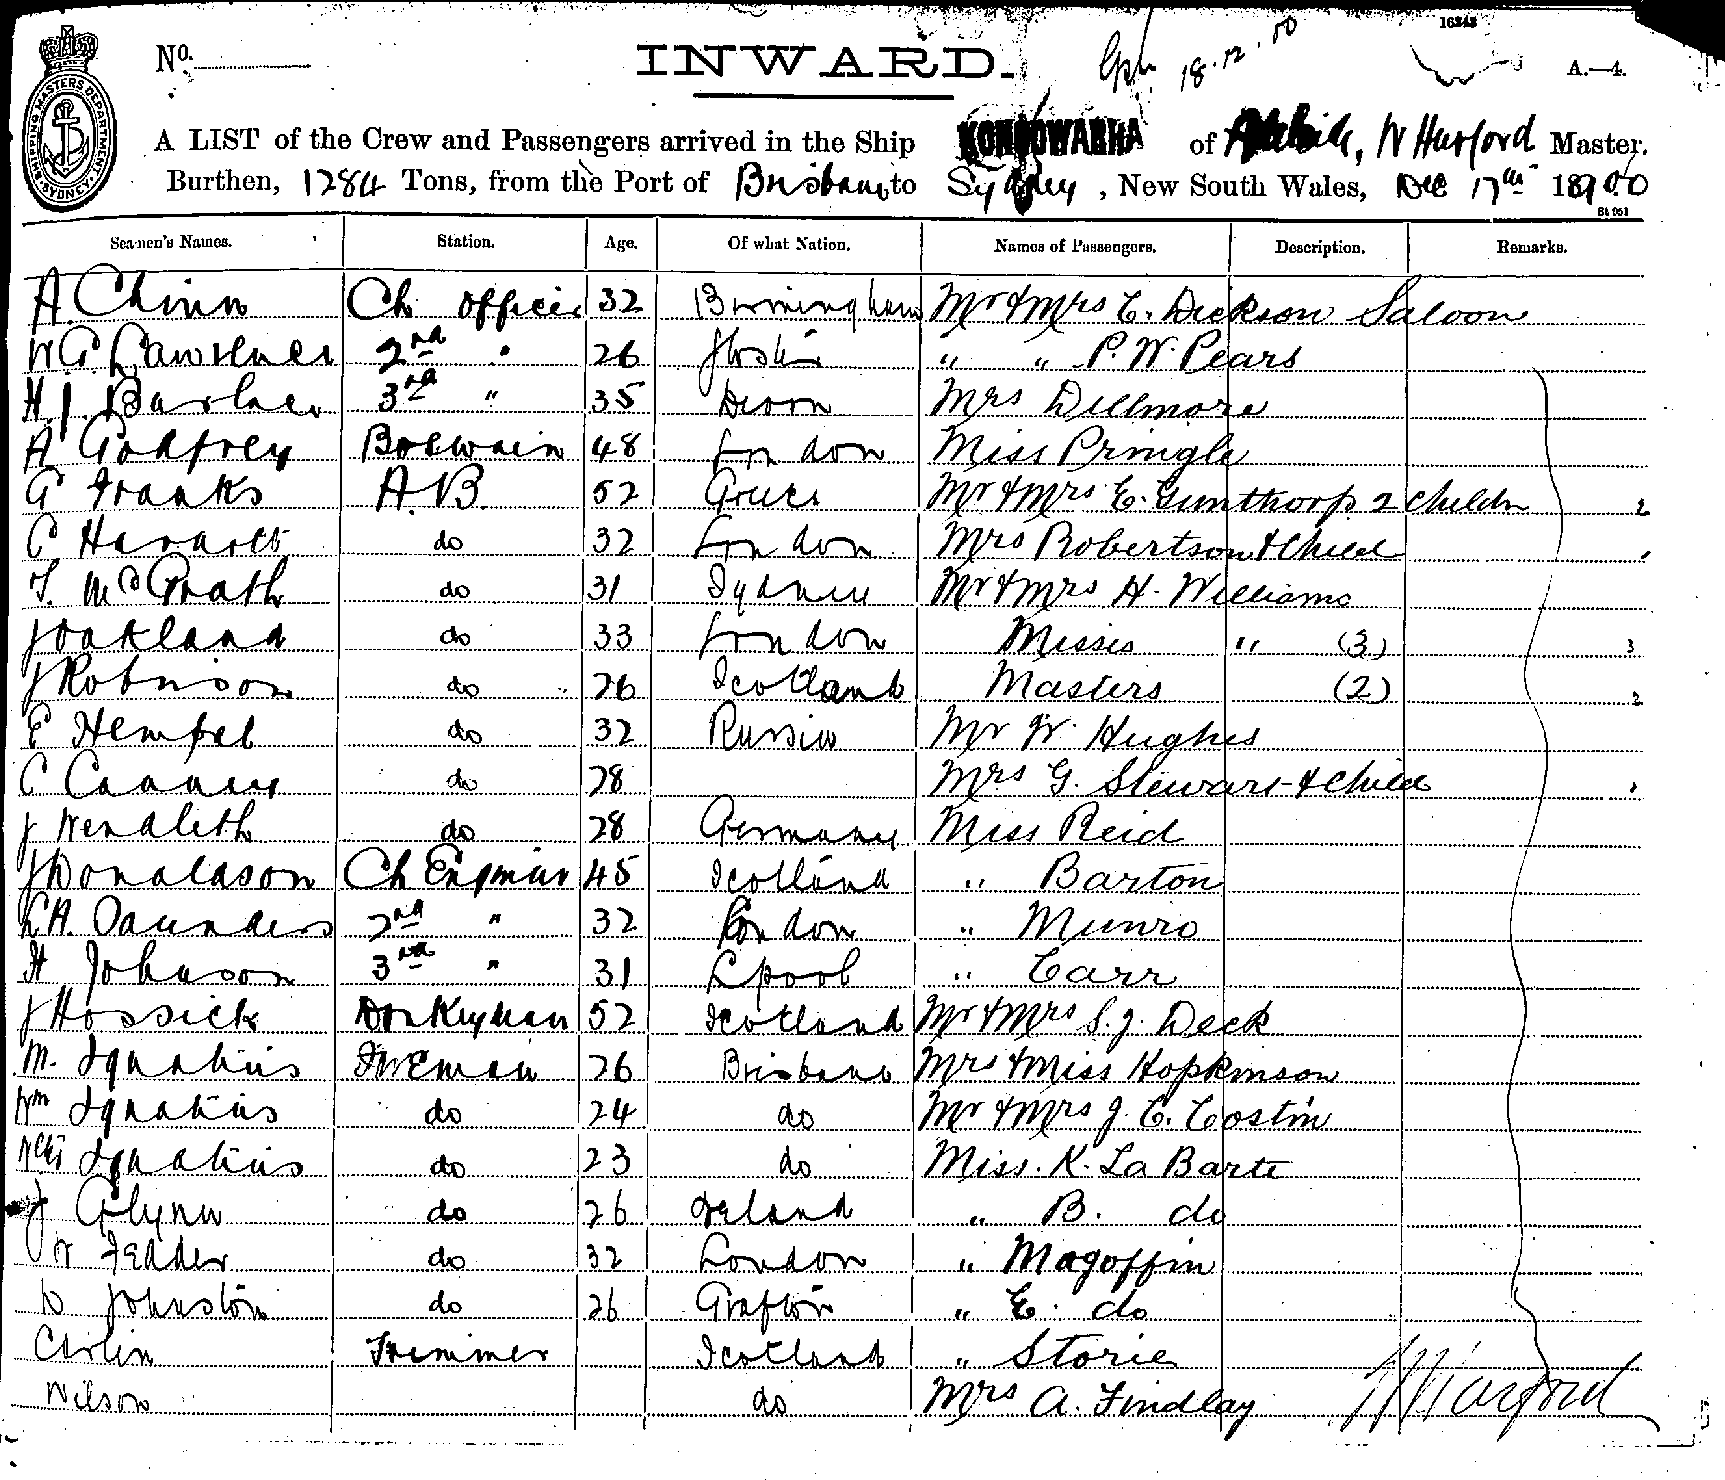 16343
No.
INWARD.
18.12.00
A.—4.
SHIPPING MASTERS DEPARTMENT SYDNEY
A LIST of the Crew and Passengers arrived in the Ship KONOOWARRA of Adelaide, W Harford Master.
Burthen, 1284 Tons, from the Port of Brisbane to Sydney, New South Wales, Dec 17th 1900
Seamen's Names. Station. Age. Of what Nation. Names of Passengers. Description. Remarks.
A. Chinn Ch Officer 32 Birmingham Mr & Mrs C. Dickson Saloon
W.G. Lawrence 2nd " 26 " " P. W. Pears
H.J. Barber 3rd " 35 Devon Mrs Dillmore
A Godfrey Boswain 48 London Miss Pringle
G Franks A.B. 52 Greece Mr & Mrs E. Gunthorp 2 Childn 2
C do 32 London Mrs Robertson & Child 1
T. McGrath do 31 Sydney Mr & Mrs H. Williams
J Oakland do 33 London Misses " (3) 3
J Robinson do 26 Scotland Masters (2) 2
E Hempel do 32 Russia Mr W. Hughes
C do 28 Mrs G. Stewart & Child 1
J do 28 Germany Miss Reid
J Donaldson Ch Engineer 45 Scotland " Barton
C.H. Saunders 2nd " 32 London " Munro
H Johnson 3rd " 31 Lpool " Carr
J Hossick Donkeyman 52 Scotland Mr & Mrs S. J. Deck
M. Ignatius Fireman 26 Brisbane Mrs & Miss Hopkinson
Wm Ignatius do 24 do Mr & Mrs J. C. Costin
Ignatius do 23 do Miss. K. La Barte
J Glynn do 26 Ireland " B. do
W Fedder do 32 London " Magoffin
D Johnston do 26 Grafton " E. do
Carlin Trimmer Scotland " Storie
Wilson do Mrs A. Findlay
W Harford